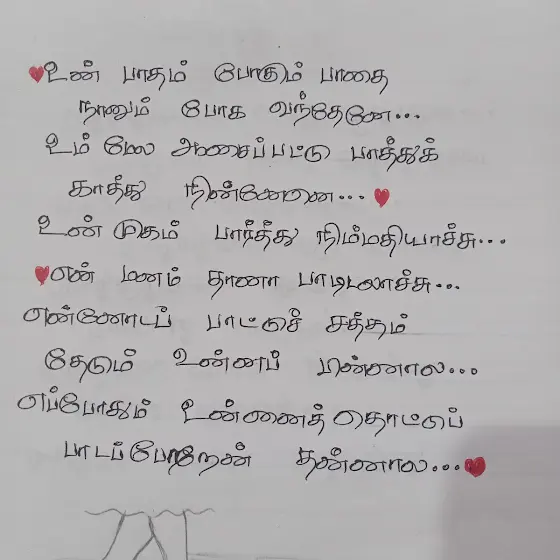 உன் பாதம் போகும் பாதை
நானும் போக வந்தேனே...
உம் மேல ஆசைப்பட்டு பாத்துக்
காத்து நின்னேனே...
உன் முகம் பார்த்து நிம்மதியாச்சு...
என் மனம் தானா பாடிடலாச்சு...
என்னோடப் பாட்டுச் சத்தம்
தேடும் உன்னப் பின்னால...
எப்போதும் உன்னைத் தொட்டுப்
பாடப்போறேன் தன்னால...